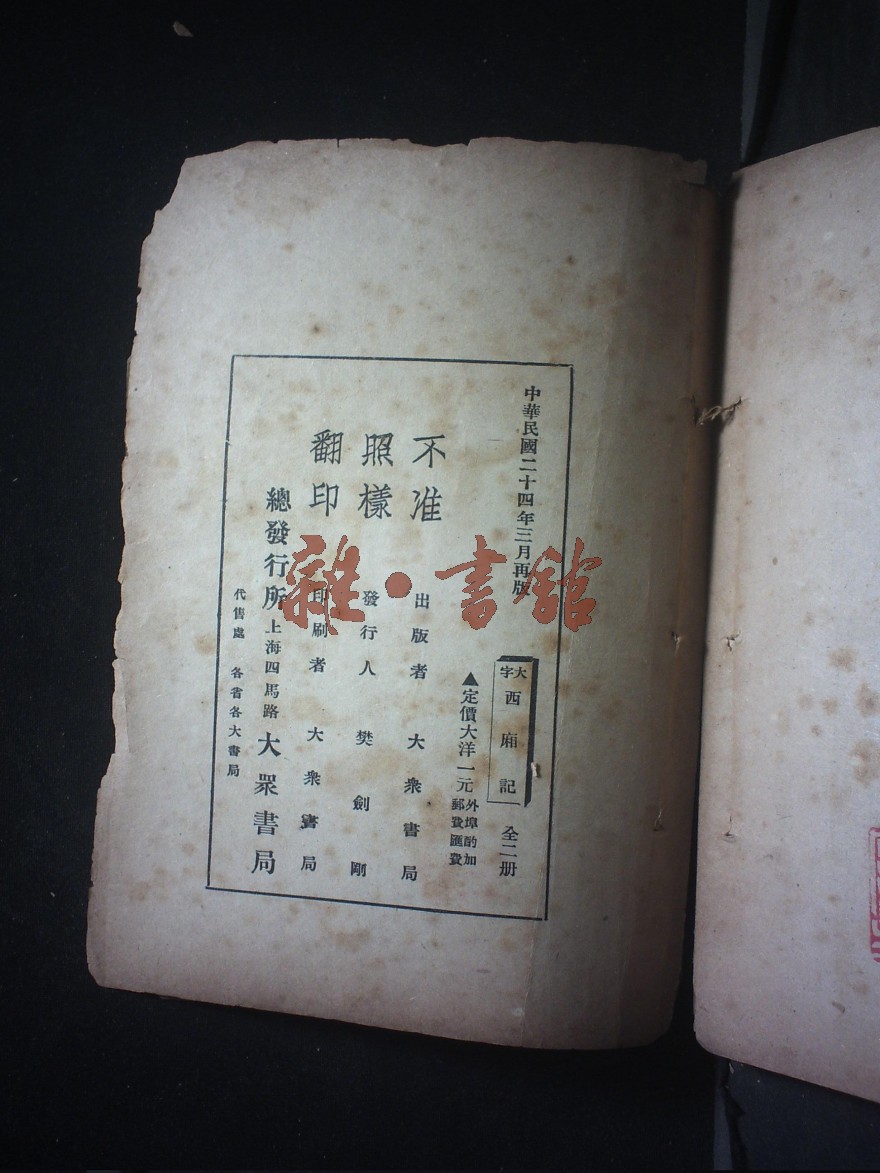 中華民國二十四年三月再版
大字
西廂記
全二册
▲定價大洋一元
外埠酌加
郵費匯費
不准
照樣
翻印
出版者 大衆書局
發行人 樊劍剛
印刷者 大衆書局
總發行所 上海四馬路 大眾書局
代售處 各省各大書局
雜·書館